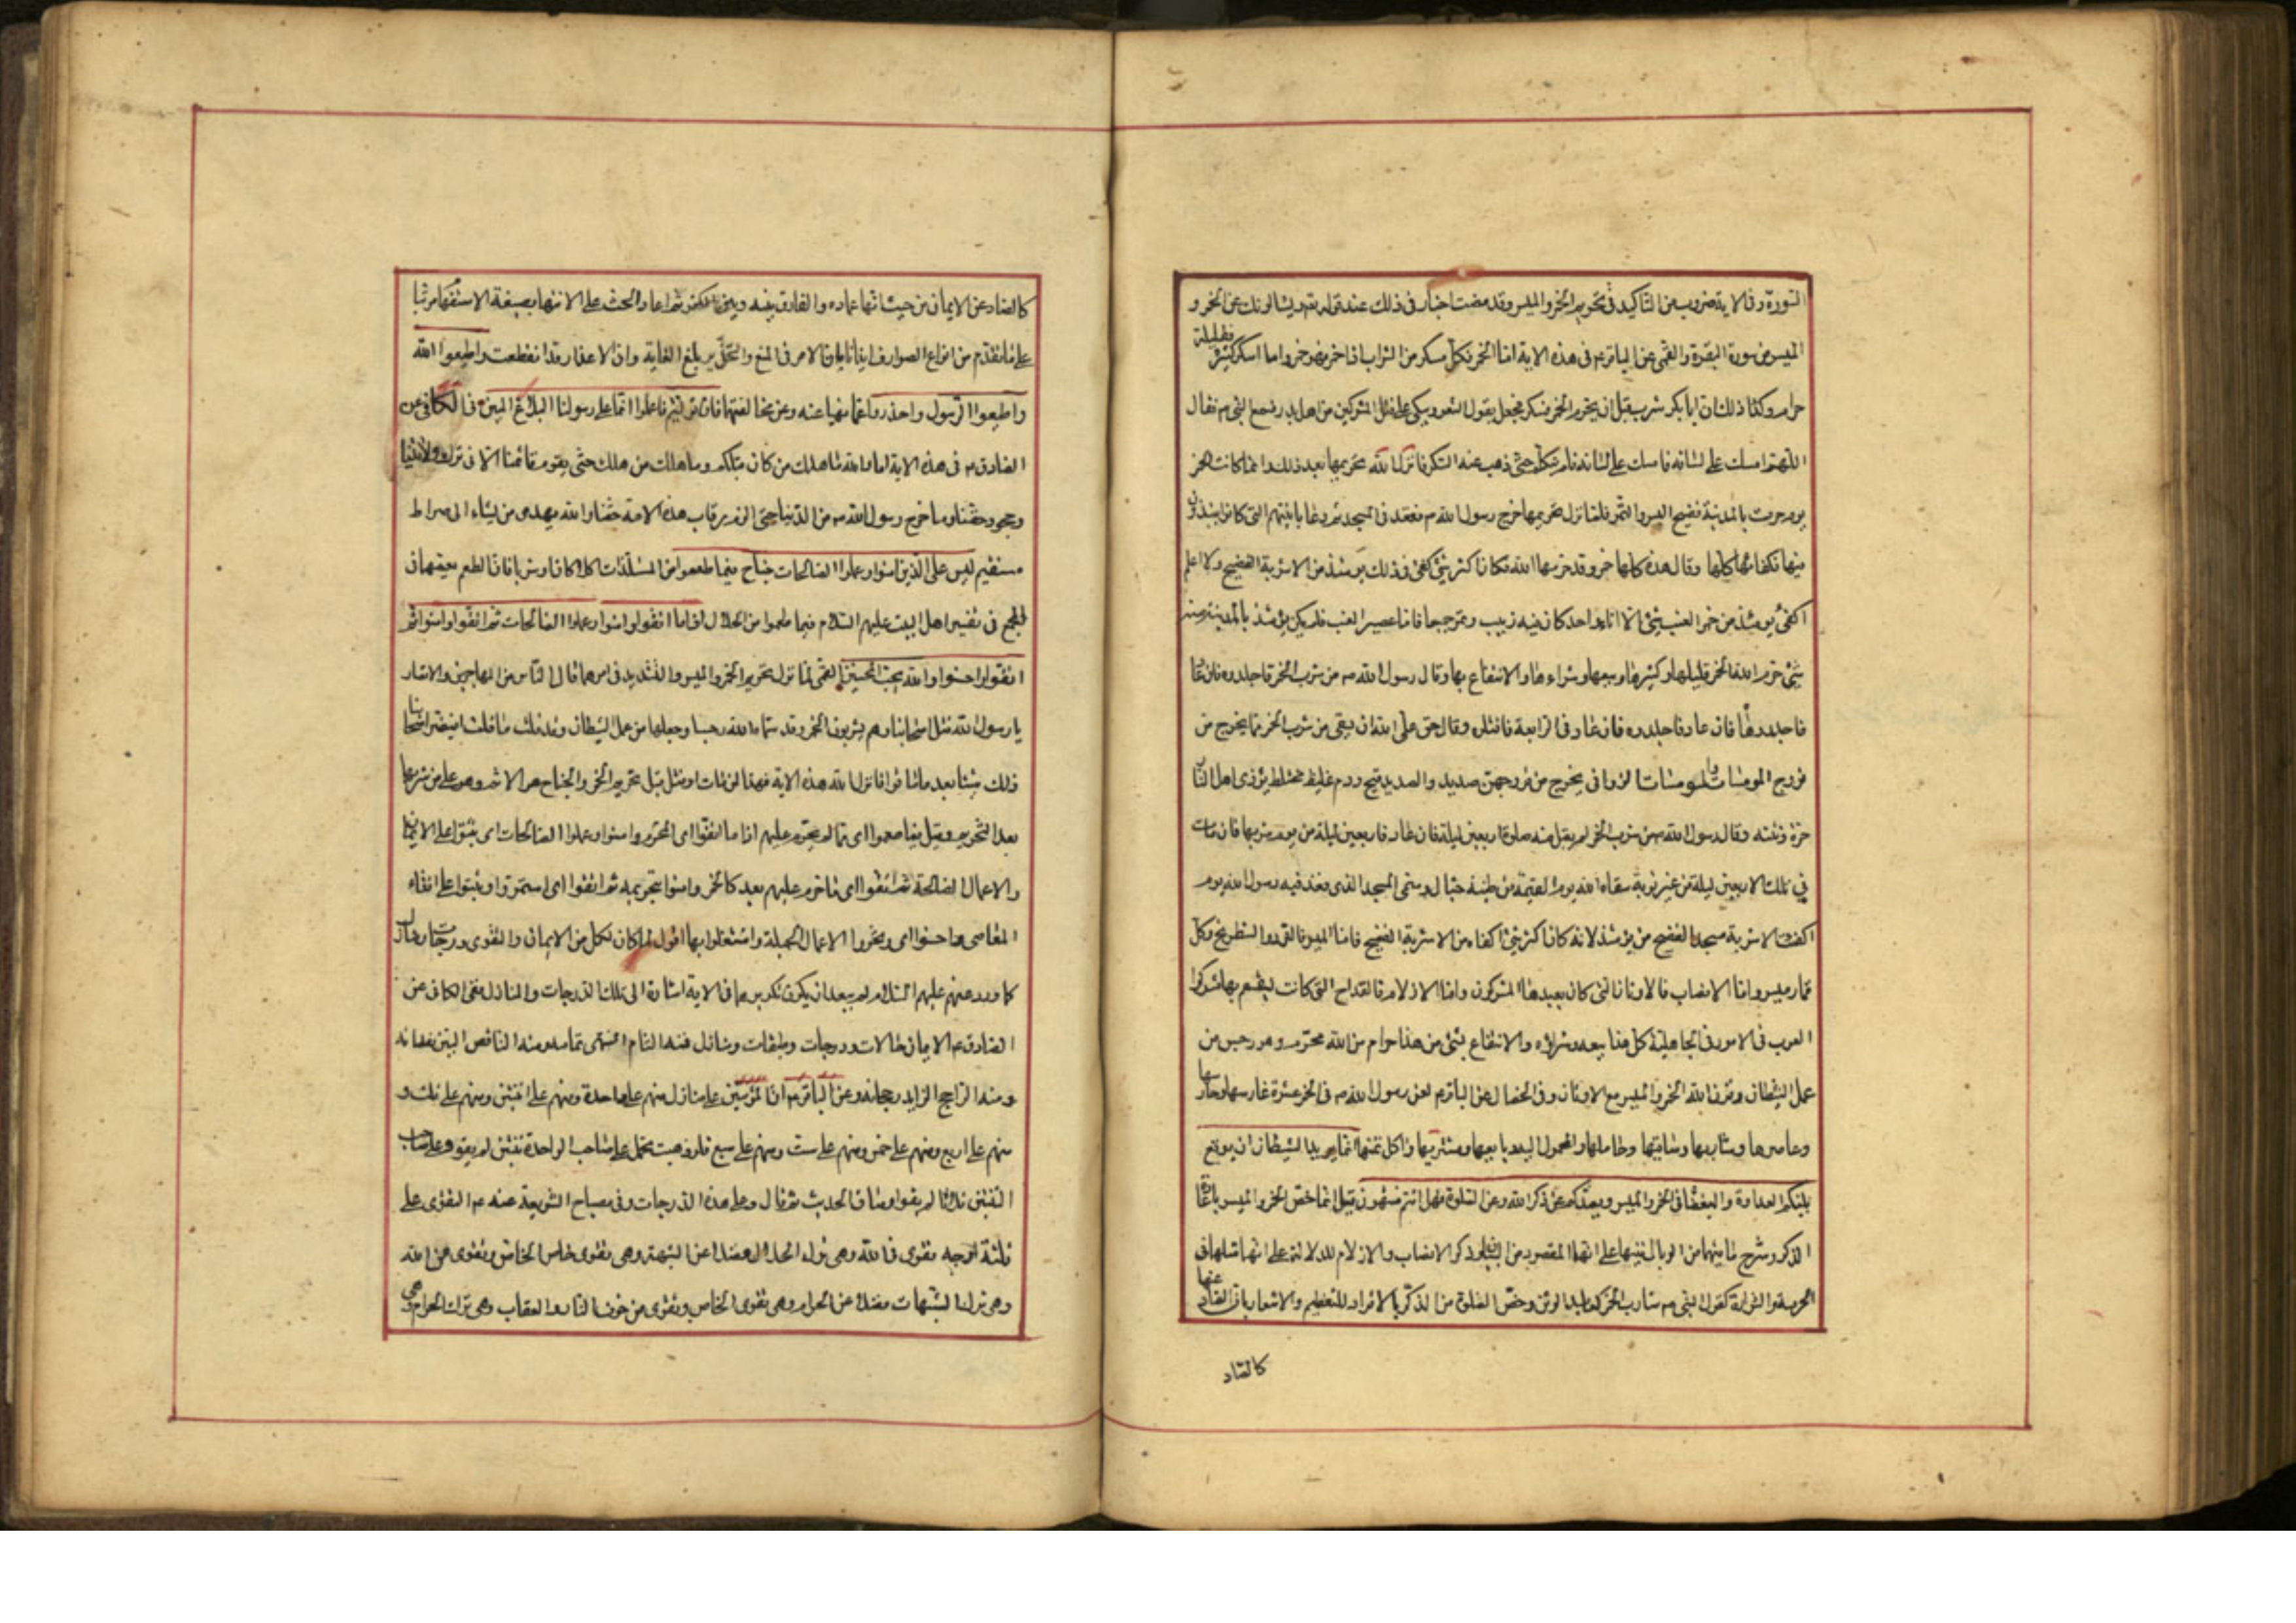 السورة وفي الاية ضروب من التاكيد في تحريم الخمر والميسر وقد مضت اخبار في ذلك عند قوله تعم ويسئالونك عن الخمر و
الميسر من سورة البقرة والقمى عن الباقرم في هذه الاية اما الخمر فكل مسكر من الشراب اذا خمر فهو خمر وما اسكر كثيره فقليله
حرام وذلك ان ابا بكر شرب قبل ان يحرم الخمر فسكر فجعل يقول الشعر ويبكى على قتلى المشركين من اهل بدر فسمع النبى ص فقال
اللهم امسك على لسانه فامسك على لسانه فلم يتكلم حتى ذهب عنه السكر فانزل الله تحريمها بعد ذلك وانما كانت الخمر
يوم حرمت بالمدينة فضيخ البسر والتمر فلما نزل تحريمها خرج رسول الله ص فقعد في المسجد ثم دعا بانيتهم التى كانوا ينبذون
فيها فكفاها كلها وقال هذه كلها خمر وقد حرمها الله فكان اكثر شئ اكفى في ذلك يومئذ من الاشربة الفضيخ ولا اعلم
اكفئ يومئذ من خمر العنب شئ الا اناء واحد كان فيه زبيب وتمر جميعا فاما عصير العنب فلم يكن يومئذ بالمدينة منه
شئ حرم الله الخمر قليلها وكثيرها وبيعها وشراءها والانتفاع بها وقال رسول الله ص من شرب الخمر فاجلدوه فان عاد
فاجلدوه فان عاد فاجلدوه فان عاد في الرابعة فاقتلوه وقال حق على الله ان يسقى من شرب الخمر مما يخرج من
فروج المومسات والمومسات الزوانى يخرج من فروجهن صديد والصديد قيح ودم غليظ مختلط يؤذى اهل النار
حره ونتنه وقال رسول الله ص من شرب الخمر لم يقبل منه صلوة اربعين ليلة فان عاد فاربعين ليلة من يوم شربها فان مات
في تلك الاربعين ليلة من غير توبة سقاه الله يوم القيمة من طينة خبال وسمى المسجد الذى قعد فيه رسول الله يوم
اكفئت الاشربة مسجد الفضيخ من يومئذ لانه كان اكثر شئ اكفاء من الاشربة الفضيخ فاما الميسر فالنرد والشطرنج وكل
قمار ميسر واما الانصاب فالاوثان التى كان يعبدها المشركون واما الازلام فالقداح التى كانت يستقسم بها مشركوا
العرب في الامور في الجاهلية كل هذا بيعه وشراؤه والانتفاع بشئ من هذا حرام من الله محرم وهو رجس من
عمل الشيطان وقرن الله الخمر والميسر مع الاوثان وفى الخصال عن الباقرم لعن رسول الله ص في الخمر عشرة غارسها وحارسها
وعاصرها وشاربها وساقيها وحاملها والمحمول اليه وبايعها ومشتريها واكل ثمنها انما يريد الشيطان ان يوقع
بينكم العداوة والبغضاء في الخمر والميسر ويصدكم عن ذكر الله وعن الصلوة فهل انتم منتهون قيل انما خص الخمر والميسر باعادة
الذكر وشرح ما فيهما من الوبال تنبيها على انهما المقصود من البيان وذكر الانصاب والازلام للدلالة على انهما مثلهما في
الحرمة والشرارة كقول النبى ص شارب الخمر كعابد الوثن وخص الصلوة من الذكر بالافراد للتعظيم والاشعار بان الصاد عنها
كالصاد
كالصاد عن الايمان من حيث انها عماده والفارق بينه وبين الكفر ثم اعاد الحث على الانتهاء بصيغة الاستفهام مرتبا
على ما تقدم من انواع الصوارف ايذانا بان الامر في المنع والتحذير بلغ الغاية وان الاعذار قد انقطعت واطيعوا الله
واطيعوا الرسول واحذروا عما نهيا عنه وعن مخالفتهما فان توليتم فاعلموا انما على رسولنا البلاغ المبين في الكافى عن
الصادق م في هذه الاية اما والله ما هلك من كان قبلكم وما هلك من هلك حتى يقوم قائمنا الا في ترك ولايتنا
وجحود حقنا وما خرج رسول الله ص من الدنيا حتى الزم رقاب هذه الامة حقنا والله يهدى من يشاء الى صراط
مستقيم ليس على الذين امنوا وعملوا الصالحات جناح فيما طعموا من المستلذات اكلا كان او شربا فان الطعم يعمهما في
المجمع في تفسير اهل البيت عليهم السلام فيما طعموا من الحلال اذا ما اتقوا وامنوا وعملوا الصالحات ثم اتقوا وامنوا ثم
اتقوا واحسنوا والله يحب المحسنين القمى لما نزل تحريم الخمر والميسر والتشديد في امرهما قال الناس من المهاجرين والانصار
يا رسول الله قتل اصحابنا وهم يشربون الخمر وقد سماه الله رجسا وجعلها من عمل الشيطان وقد قلت ما قلت افيضر اصحابنا
ذلك شيئا بعد ما ماتوا فانزل الله هذه الاية فهذا لمن مات او قتل قبل تحريم الخمر والجناح هو الاثم وهو على من شربها
بعد التحريم وقيل فيما طعموا اى مما لم يحرم عليهم اذا ما اتقوا اى المحرم وامنوا وعملوا الصالحات اى ثبتوا على الايمان
والاعمال الصالحة ثم اتقوا اى ما حرم عليهم بعد كالخمر وامنوا بتحريمه ثم اتقوا اى استمروا وثبتوا على اتقاء
المعاصى واحسنوا اى وتحروا الاعمال الجميلة واشتغلوا بها اقول لما كان لكل من الايمان والتقوى درجات ومنازل
كما ورد عنهم عليهم السلام لم يبعد ان يكون تكريرهما في الاية اشارة الى تلك الدرجات والمنازل ففى الكافى عن
الصادق م الايمان حالات ودرجات وطبقات ومنازل فمنه التام المنتهى تمامه ومنه الناقص البين نقصانه
ومنه الراجح الزايد رجحانه وعن الباقر م ان المؤمنين على منازل منهم على واحدة ومنهم على اثنتين ومنهم على ثلث و
منهم على اربع ومنهم على خمس ومنهم على ست ومنهم على سبع فلو ذهبت تحمل على صاحب الواحدة ثنتين لم يقو وعلى صاحب
الثنتين ثلاثا لم يقو وساق الحديث ثم قال وعلى هذه الدرجات وفى مصباح الشريعة عنه م التقوى على
ثلثة اوجه تقوى في الله وهى ترك الحلال فضلا عن الشبهة وهى تقوى خاص الخاص وتقوى من الله
وهى ترك الشبهات فضلا عن الحرام وهى تقوى الخاص وتقوى من خوف النار والعقاب وهى ترك الحرام وهى